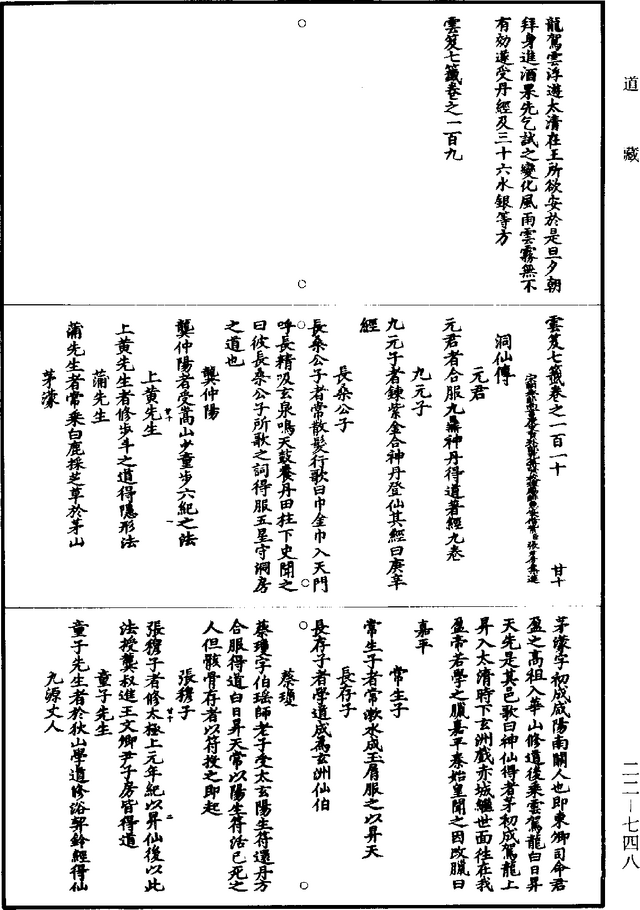 道藏
龍駕雲浮遊太清在王所欲安於是旦夕朝
拜身進酒果先乞試之變化風雨雲霧無不
有効遂受丹經及三十六水銀等方
雲笈七籤卷之一百九
雲笈七籤卷之一百一十 甘十
洞仙傳
元君
元君者合服九鼎神丹得道著經九卷
九元子
九元子者鍊紫金合神丹登仙其經曰庚辛
經
長桑公子
長桑公子者常散髮行歌曰巾金巾入天門
呼長精吸玄泉鳴天鼓養丹田柱下史聞之
曰彼長桑公子所歌之詞得服五星守洞房
之道也
龔仲陽
龔仲陽者受嵩山少童步六紀之法
上黄先生
上黄先生者修步斗之道得隱形法
蒲先生
蒲先生者常乘白鹿採芝草於茅山
茅濛
茅濛字初成咸陽南關人也即東卿司命君
盈之高祖入華山修道後乘雲駕龍白日昇
天先是其邑歌曰神仙得者茅初成駕龍上
昇入太清時下玄洲戲赤城繼世而往在我
盈帝若學之臘嘉平秦始皇聞之因改臘曰
嘉平
常生子
常生子者常漱水成玉屑服之以昇天
長存子
長存子者學道成爲玄洲仙伯
蔡瓊
蔡瓊字伯瑶師老子受太玄陽生符還丹方
合服得道白日昇天常以陽生符活已死之
人但骸骨存者以符投之即起
張穆子
張穆子者修太極上元年紀以昇仙後以此
法授龔叔進王文卿尹子房皆得道
童子先生
童子先生者於狄山學道修浴契鈐經得仙
九源丈人
二二—七四八